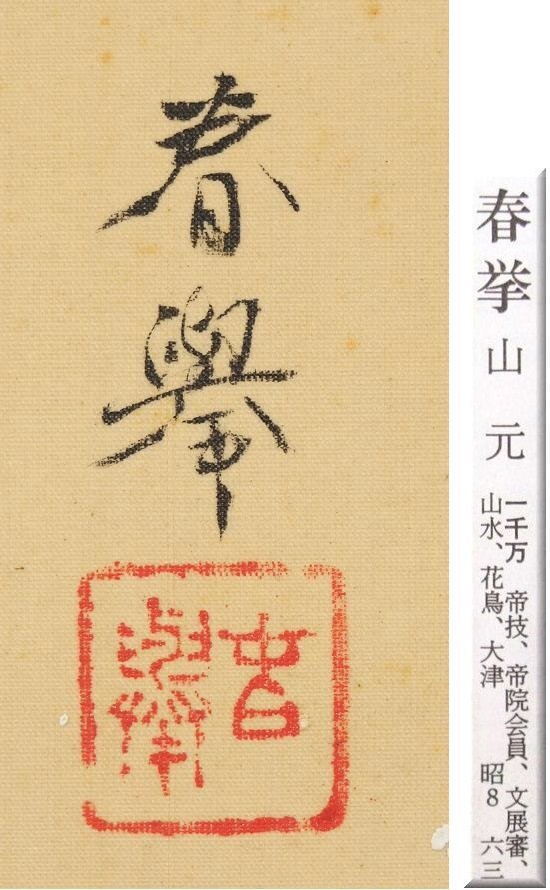 春
擧
春擧
春挙 山元
一千万 帝技、帝院会員、文展審、
山水、花鳥、大津 昭8 六三